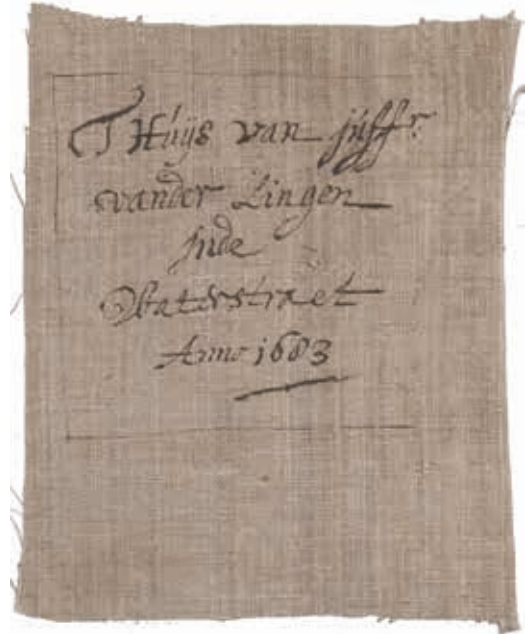 T Huijs van juffr.
vander Lingen
jnde
Waterstraet
Anno 1683